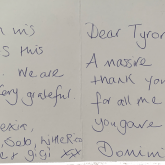 his
s this
We are
very grateful.
Gabo,
+ Gigi xx
Dear Tyron
A massive
thank you
for all
you gave
Domin